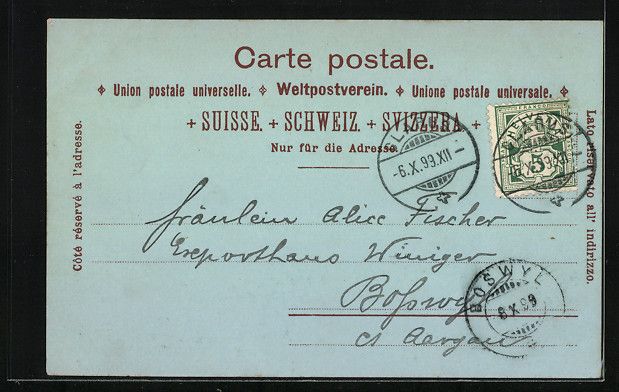 Carte postale.
Union postale universelle. Weltpostverein. Unione postale universale.
+ SUISSE. + SCHWEIZ. + SVIZZERA. +
Nur für die Adresse.
Côté réservé à l'adresse.
Lato riservato all' indirizzo.
FRANCO
5
-9.X.99.XII-
Fräulein Alice Fischer
Exporthaus Winiger
Boßwyl
Ct Aargau
BOSWYL